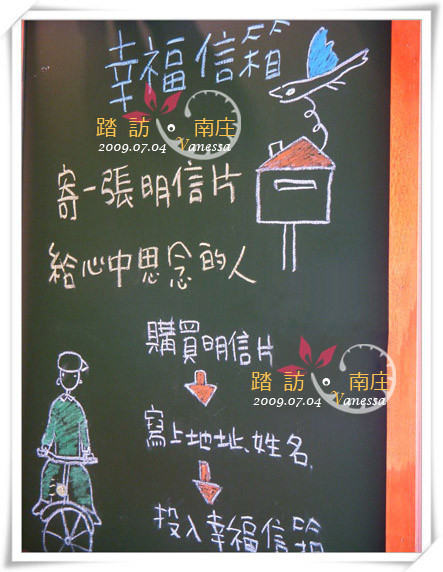 幸福信箱
踏訪 南庄
2009.07.04 Vanessa
寄一張明信片
給心中思念的人
購買明信片
踏訪 南庄
2009.07.04 Vanessa
寫上地址、姓名.
投入幸福信箱